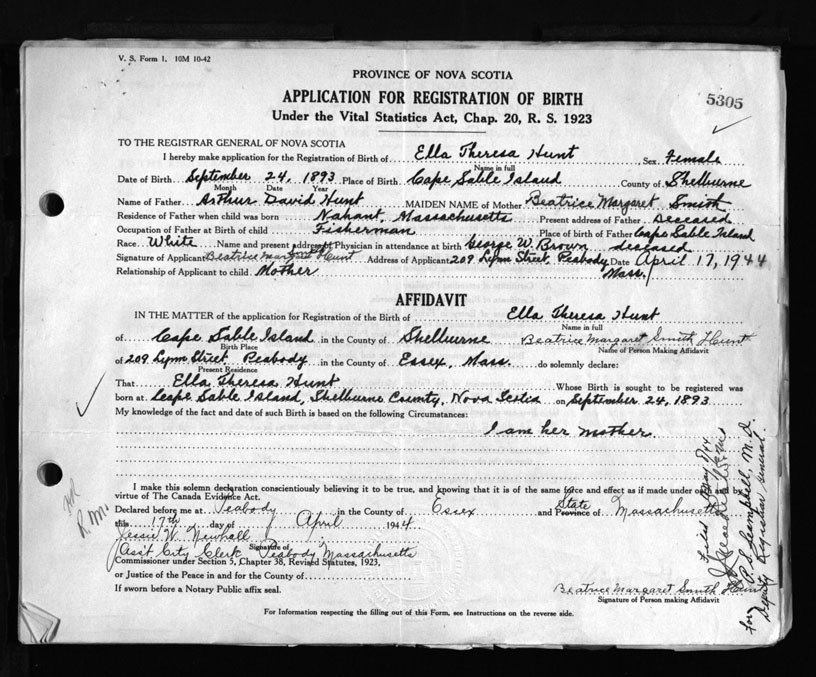 V. S. Form 1. 10M 10-42
PROVINCE OF NOVA SCOTIA
APPLICATION FOR REGISTRATION OF BIRTH
5305
Under the Vital Statistics Act, Chap. 20, R. S. 1923
TO THE REGISTRAR GENERAL OF NOVA SCOTIA
I hereby make application for the Registration of Birth of Ella Theresa Hunt Sex Female
Name in full
Date of Birth September 24, 1893 Place of Birth Cape Sable Island County of Shelburne
Month Date Year
Name of Father Arthur David Hunt MAIDEN NAME of Mother Beatrice Margaret Smith
Residence of Father when child was born Nahant, Massachusetts Present address of Father Deceased
Occupation of Father at Birth of child Fisherman Place of birth of Father Cape Sable Island
Race White Name and present address of Physician in attendance at birth George W. Brown deceased
Signature of Applicant Beatrice Margaret Hunt Address of Applicant 209 Lynn Street, Peabody, Date April 17, 1944
Mass.
Relationship of Applicant to child Mother
AFFIDAVIT
IN THE MATTER of the application for Registration of the Birth of Ella Theresa Hunt
Name in full
of Cape Sable Island in the County of Shelburne Beatrice Margaret Smith Hunt
Birth Place Name of Person Making Affidavit
of 209 Lynn Street, Peabody in the County of Essex, Mass. do solemnly declare:
Present Residence
That Ella Theresa Hunt Whose Birth is sought to be registered was
born at Cape Sable Island, Shelburne County, Nova Scotia on September 24, 1893
My knowledge of the fact and date of such Birth is based on the following Circumstances:
I am her mother.
I make this solemn declaration conscientiously believing it to be true, and knowing that it is of the same force and effect as if made under oath and by
virtue of The Canada Evidence Act.
State
Declared before me at Peabody in the County of Essex and Province of Massachusetts
this 17th day of April 1944
Jessie W. Newhall
Signature of
Ass't City Clerk Peabody Massachusetts
Commissioner under Section 5, Chapter 38, Revised Statutes, 1923,
or Justice of the Peace in and for the County of
If sworn before a Notary Public affix seal.
Beatrice Margaret Smith Hunt
Signature of Person making Affidavit
For Information respecting the filling out of this Form, see Instructions on the reverse side.
R.M.
Filed May
for P. S. Campbell, M. D
Deputy Registrar General.